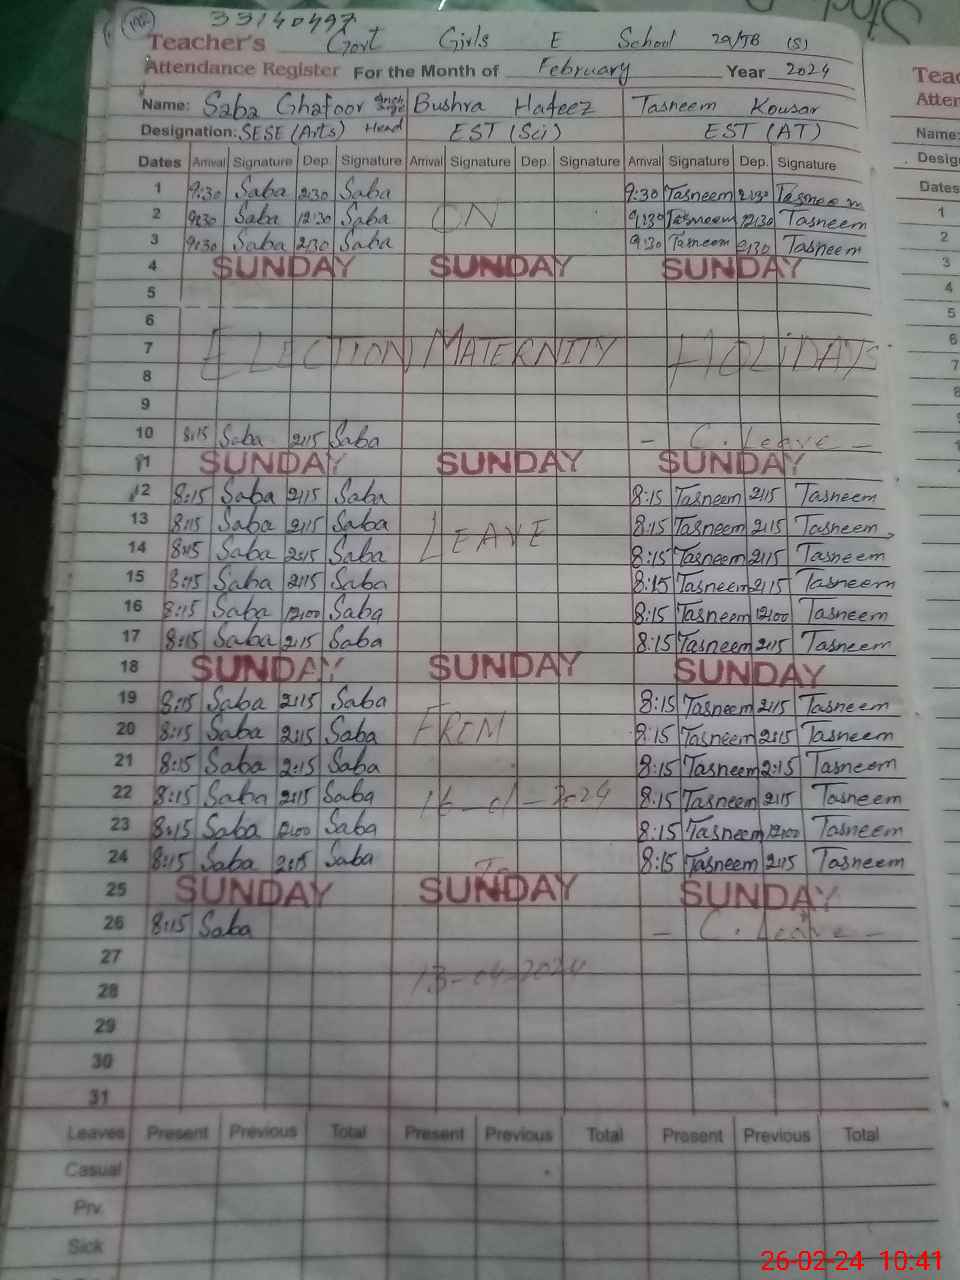 192 33140497
Teacher's Govt Girls E School 29/TB (S)
Attendance Register For the Month of February Year 2024
Name: Saba Ghafoor Bushra Hafeez Tasneem Kousar
Designation: SESE (Arts) Head EST (Sci) EST (AT)
Dates Arrival Signature Dep. Signature Arrival Signature Dep. Signature Arrival Signature Dep. Signature
1 9:30 Saba 2:30 Saba 9:30 Tasneem 2:30 Tasneem
2 9:30 Saba 12:30 Saba ON 9:30 Tasneem 12:30 Tasneem
3 9:30 Saba 2:30 Saba 9:30 Tasneem 2:30 Tasneem
4 SUNDAY SUNDAY SUNDAY
5
6
7 ELECTION MATERNITY HOLiDAYS
8
9
10 8:15 Saba 2:15 Saba - C. Leave -
11 SUNDAY SUNDAY SUNDAY
12 8:15 Saba 2:15 Saba 8:15 Tasneem 2:15 Tasneem
13 8:15 Saba 2:15 Saba LEAVE 8:15 Tasneem 2:15 Tasneem
14 8:15 Saba 2:15 Saba 8:15 Tasneem 2:15 Tasneem
15 8:15 Saba 2:15 Saba 8:15 Tasneem 2:15 Tasneem
16 8:15 Saba 12:00 Saba 8:15 Tasneem 12:00 Tasneem
17 8:15 Saba 2:15 Saba 8:15 Tasneem 2:15 Tasneem
18 SUNDAY SUNDAY SUNDAY
19 8:15 Saba 2:15 Saba 8:15 Tasneem 2:15 Tasneem
20 8:15 Saba 2:15 Saba FROM 8:15 Tasneem 2:15 Tasneem
21 8:15 Saba 2:15 Saba 8:15 Tasneem 2:15 Tasneem
22 8:15 Saba 2:15 Saba 16-01-2024 8:15 Tasneem 2:15 Tasneem
23 8:15 Saba 12:00 Saba 8:15 Tasneem 12:00 Tasneem
24 8:15 Saba 2:15 Saba To 8:15 Tasneem 2:15 Tasneem
25 SUNDAY SUNDAY SUNDAY
26 8:15 Saba - C. Leave -
27
28 13-04-2024
29
30
31
Leaves Present Previous Total Present Previous Total Present Previous Total
Casual
Prv.
Sick
Teac
Atter
Name:
Desig
Dates
1
2
3
4
5
6
7
26-02-24 10:41